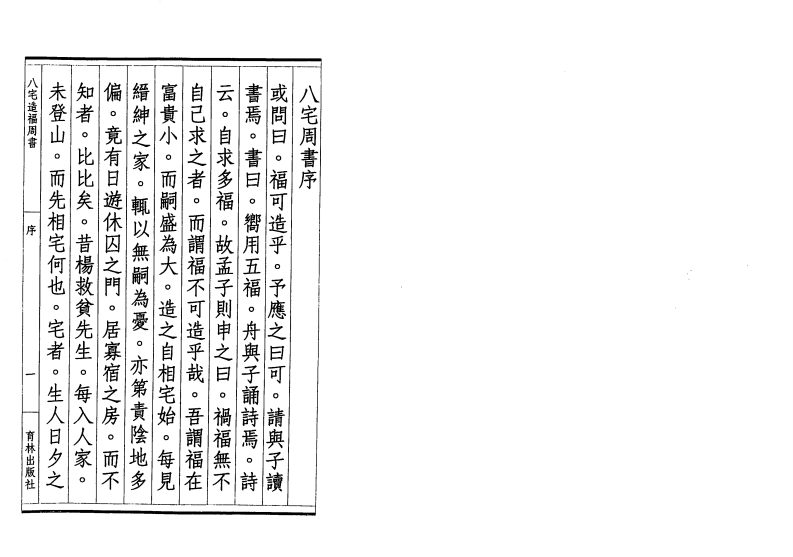 八宅周書序
或問曰。福可造乎。予應之曰可。請與子讀
書焉。書曰。嚮用五福。舟與子誦詩焉。詩
云。自求多福。故孟子則申之曰。禍福無不
自己求之者。而謂福不可造乎哉。吾謂福在
富貴小。而嗣盛為大。造之自相宅始。每見
縉紳之家。輒以無嗣為憂。亦第責陰地多
偏。竟有日遊休囚之門。居寡宿之房。而不
知者。比比矣。昔楊救貧先生。每入人家。
未登山。而先相宅何也。宅者。生人日夕之
八宅造福周書
序
一
育林出版社